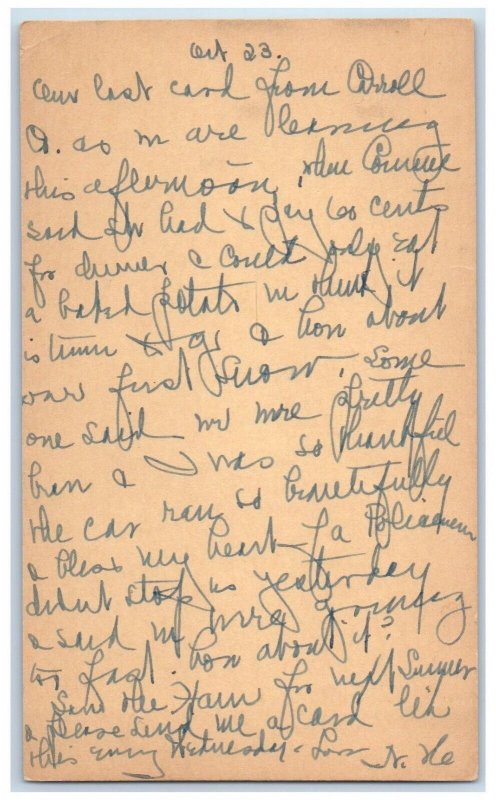 Oct 23.
Our last card from Carroll
O. as we are leaving
this afternoon, when Connie
said she had to pay 60 cents
for dinner & could only eat
a baked potato we think it
is time to go & how about
our first snow, Some
one said we were pretty
& I was so thankful
the car ran so beautifully
& bless my heart if a Policeman
didnt stop us yesterday
& said we were going
to fast. how about it?
Save the Ham for next Summer
& please send me a card
this Wednesday - Love